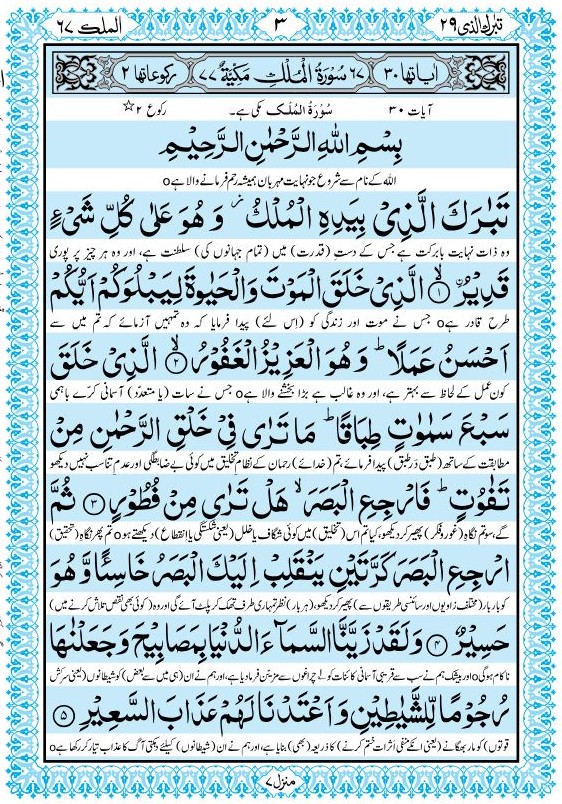 تبرک الذی ۲۹ ۳ الملک ۶۷
ایاتها ۳۰ ۶۷ سُوْرَةُ الْمُلْكِ مَكِّيَّةٌ ۷۷ رکوعاتها ۲
آیات ۳۰ سُوْرَةُ الْمُلْك مکی ہے۔ رکوع ۲
بِسْمِ اللهِ الرَّحْمٰنِ الرَّحِيْمِ
اللہ کے نام سے شروع جو نہایت مہربان ہمیشہ رحم فرمانے والا ہے o
تَبٰرَكَ الَّذِيْ بِيَدِهِ الْمُلْكُ ۡ وَ هُوَ عَلٰى كُلِّ شَيْءٍ
وہ ذات نہایت بابرکت ہے جس کے دستِ (قدرت) میں (تمام جہانوں کی) سلطنت ہے، اور وہ ہر چیز پر پوری
قَدِيْرُ ۙ﴿۱﴾ الَّذِيْ خَلَقَ الْمَوْتَ وَالْحَيٰوةَ لِيَبْلُوَكُمْ اَيُّكُمْ
طرح قادر ہے o جس نے موت اور زندگی کو (اِس لئے) پیدا فرمایا کہ وہ تمہیں آزمائے کہ تم میں سے
اَحْسَنُ عَمَلًا ؕ وَ هُوَ الْعَزِيْزُ الْغَفُوْرُ ۙ﴿۲﴾ الَّذِيْ خَلَقَ
کون عمل کے لحاظ سے بہتر ہے، اور وہ غالب ہے بڑا بخشنے والا ہے o جس نے سات (یا متعدّد) آسمانی کرّے باہمی
سَبْعَ سَمٰوٰتٍ طِبَاقًا ؕ مَا تَرٰى فِيْ خَلْقِ الرَّحْمٰنِ مِنْ
مطابقت کے ساتھ (طبق دَر طبق) پیدا فرمائے، تم (خدائے) رحمان کے نظامِ تخلیق میں کوئی بے ضابطگی اور عدمِ تناسب نہیں دیکھو
تَفٰوُتٍ ؕ فَارْجِعِ الْبَصَرَ ۙ هَلْ تَرٰى مِنْ فُطُوْرٍ ﴿۳﴾ ثُمَّ
گے، سو تم نگاہِ (غور و فکر) پھیر کر دیکھو، کیا تم اس (تخلیق) میں کوئی شگاف یا خلل (یعنی شکستگی یا انقطاع) دیکھتے ہو o تم پھر نگاہِ (تحقیق)
ارْجِعِ الْبَصَرَ كَرَّتَيْنِ يَنْقَلِبْ اِلَيْكَ الْبَصَرُ خَاسِئًا وَّ هُوَ
کو بار بار (مختلف زاویوں اور سائنسی طریقوں سے) پھیر کر دیکھو، (ہر بار) نظر تمہاری طرف تھک کر پلٹ آئے گی اور وہ (کوئی بھی نقص تلاش کرنے میں)
حَسِيْرٌ ﴿۴﴾ وَ لَقَدْ زَيَّنَّا السَّمَآءَ الدُّنْيَا بِمَصَابِيْحَ وَ جَعَلْنٰهَا
ناکام ہو گی o اور بیشک ہم نے سب سے قریبی آسمانی کائنات کو چراغوں سے مزیّن فرما دیا ہے، اور ہم نے ان (ہی میں سے بعض) کو شیطانوں (یعنی سرکش
رُجُوْمًا لِّلشَّيٰطِيْنِ وَ اَعْتَدْنَا لَهُمْ عَذَابَ السَّعِيْرِ ﴿۵﴾
قوتوں) کو مار بھگانے (یعنی انکے منفی اَثرات ختم کرنے) کا ذریعہ (بھی) بنایا ہے، اور ہم نے ان (شیطانوں) کیلئے دہکتی آگ کا عذاب تیار کر رکھا ہے o
منزل ۷